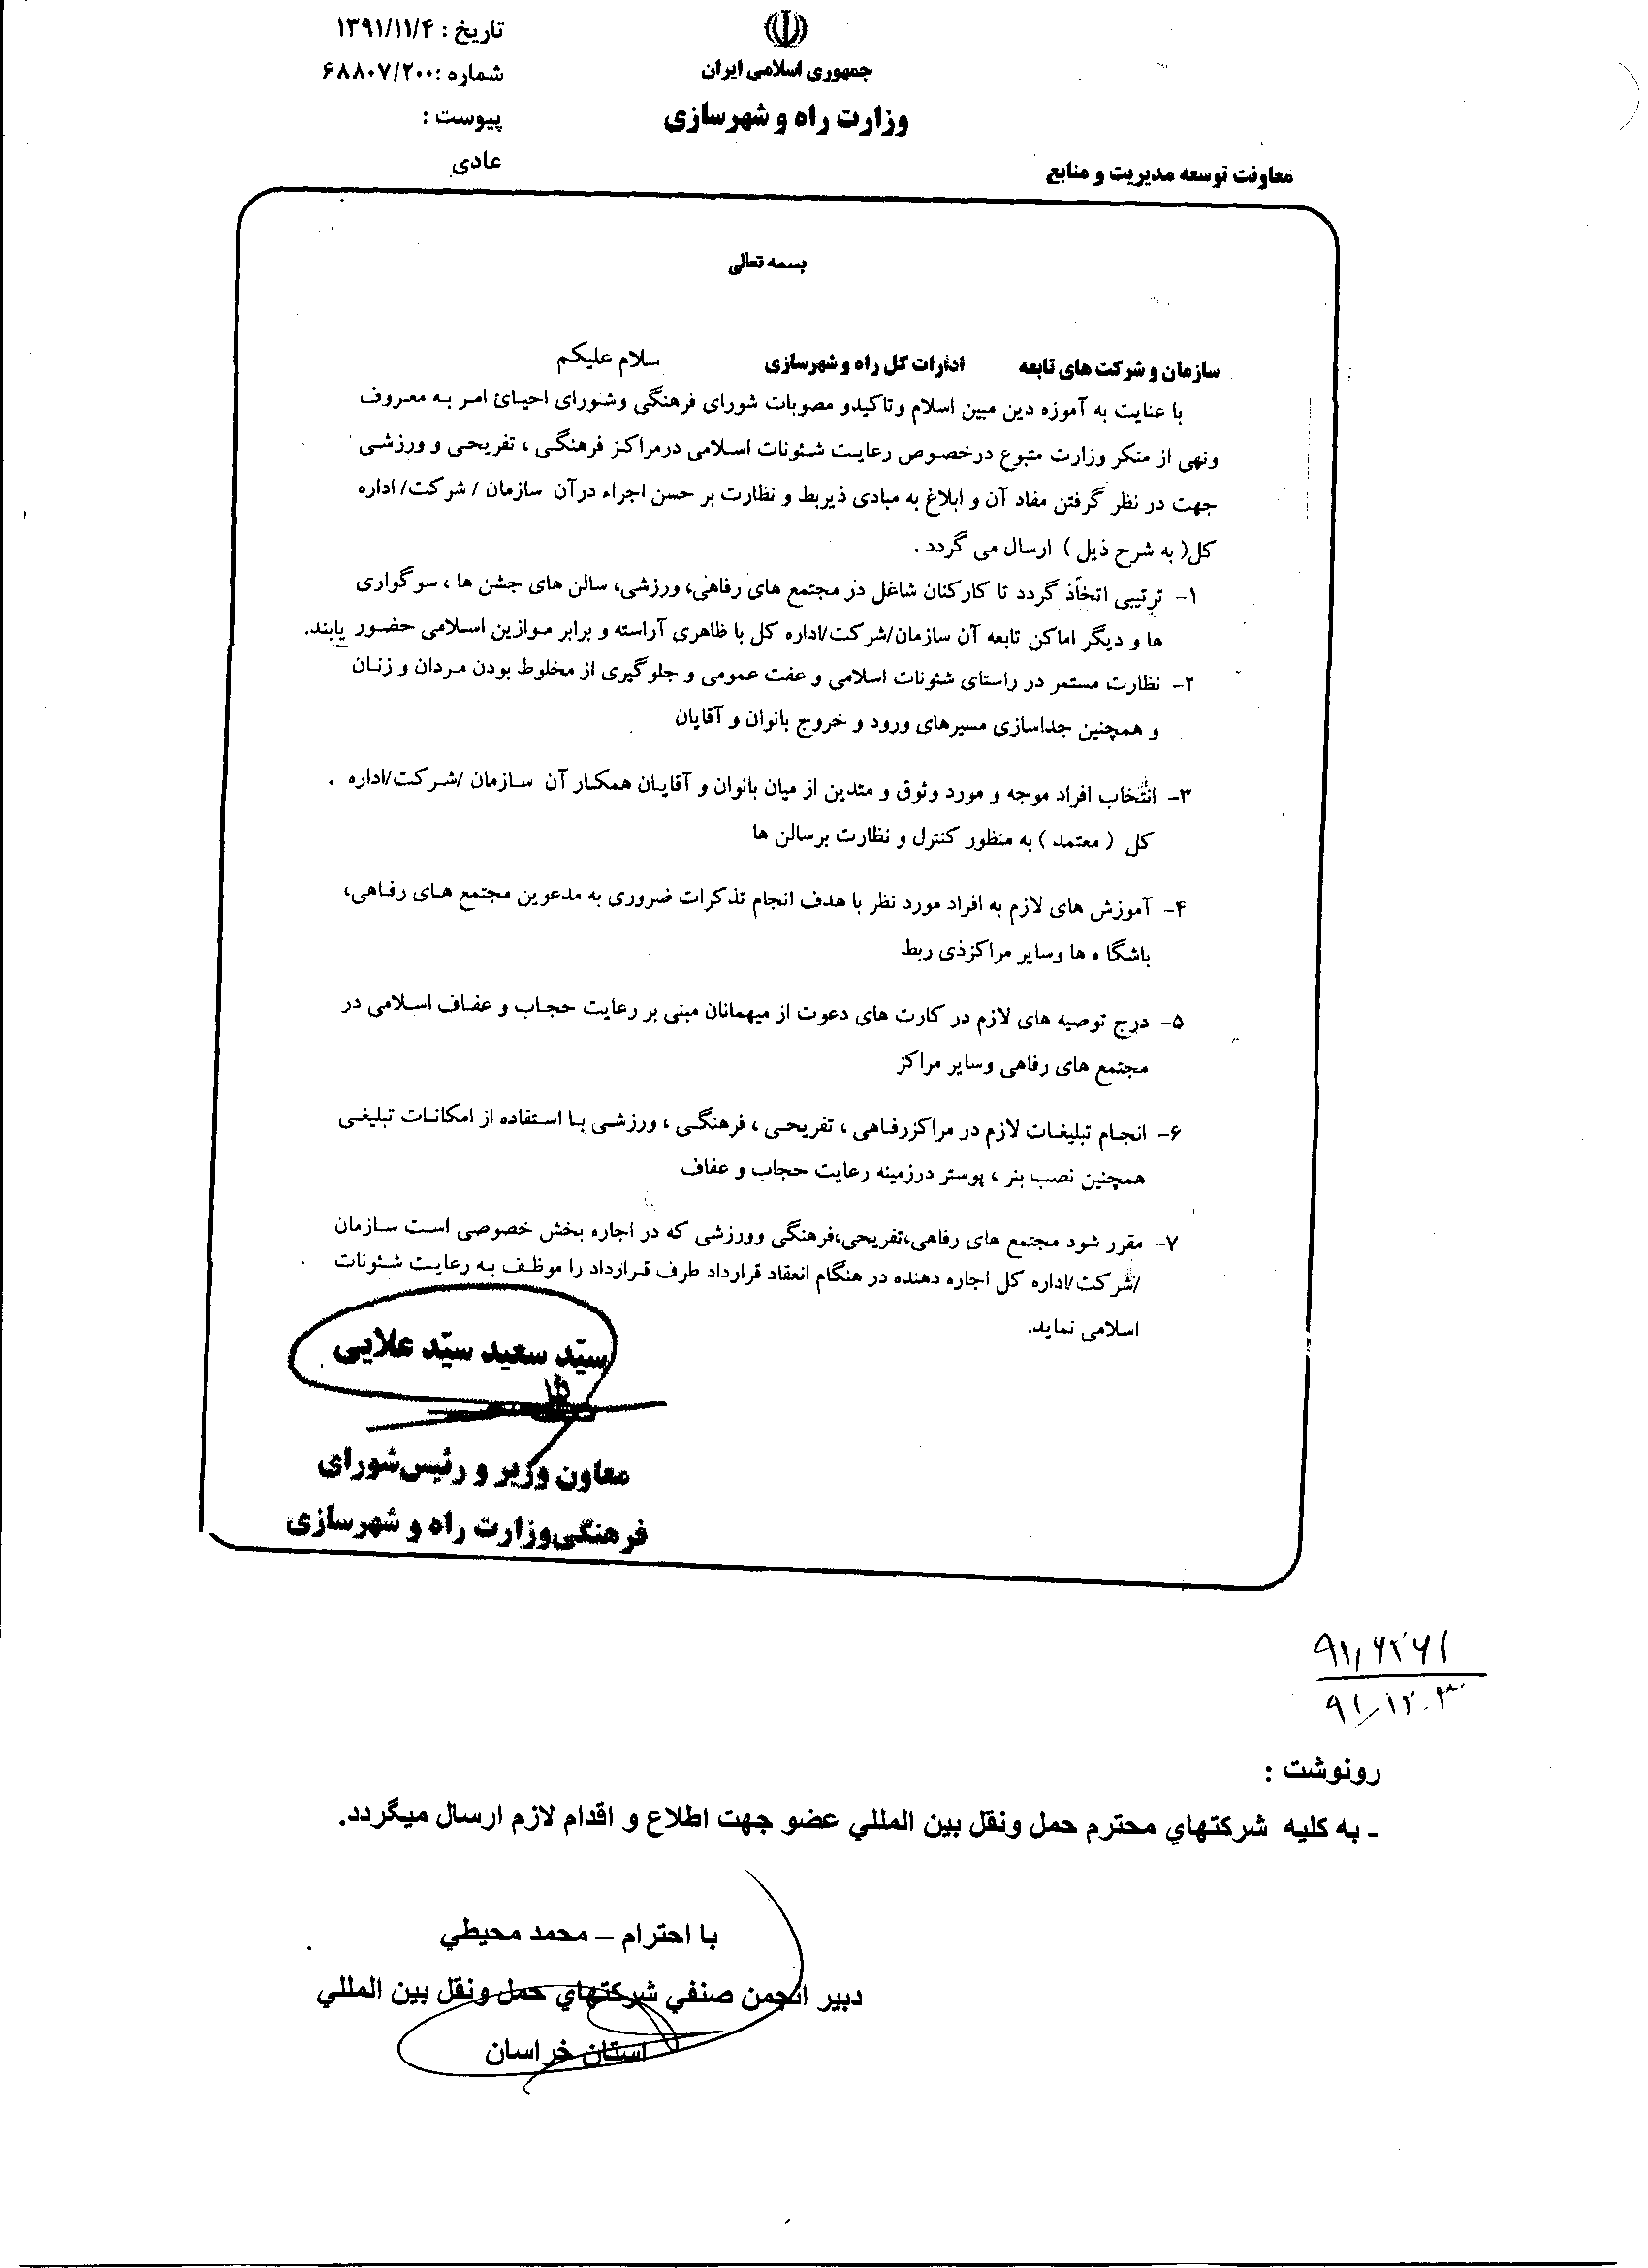 تاریخ : ۱۳۹۱/۱۱/۴
شماره :۶۸۸۰۷/۲۰۰
پیوست :
عادی
جمهوری اسلامی ایران
وزارت راه و شهرسازی
معاونت توسعه مدیریت و منابع
بسمه تعالی
سازمان و شرکت های تابعه ادارات کل راه و شهرسازی سلام علیکم
با عنایت به آموزه دین مبین اسلام وتاکیدو مصوبات شورای فرهنگی وشورای احیائ امر به معروف
ونهی از منکر وزارت متبوع درخصوص رعایت شئونات اسلامی درمراکز فرهنگی ، تفریحی و ورزشی
جهت در نظر گرفتن مفاد آن و ابلاغ به مبادی ذیربط و نظارت بر حسن اجراء درآن سازمان / شرکت/ اداره
کل( به شرح ذیل ) ارسال می گردد .
۱- ترتیبی اتخاذ گردد تا کارکنان شاغل در مجتمع های رفاهی، ورزشی، سالن های جشن ها ، سوگواری
ها و دیگر اماکن تابعه آن سازمان/شرکت/اداره کل با ظاهری آراسته و برابر موازین اسلامی حضور یابند.
۲- نظارت مستمر در راستای شئونات اسلامی و عفت عمومی و جلوگیری از مخلوط بودن مردان و زنان
و همچنین جداسازی مسیرهای ورود و خروج بانوان و آقایان
۳- انتخاب افراد موجه و مورد وثوق و متدین از میان بانوان و آقایان همکار آن سازمان /شرکت/اداره
کل ( معتمد ) به منظور کنترل و نظارت برسالن ها
۴- آموزش های لازم به افراد مورد نظر با هدف انجام تذکرات ضروری به مدعوین مجتمع های رفاهی،
باشگا ه ها وسایر مراکزذی ربط
۵- درج توصیه های لازم در کارت های دعوت از میهمانان مبنی بر رعایت حجاب و عفاف اسلامی در
مجتمع های رفاهی وسایر مراکز
۶- انجام تبلیغات لازم در مراکزرفاهی ، تفریحی ، فرهنگی ، ورزشی با استفاده از امکانات تبلیغی
همچنین نصب بنر ، پوستر درزمینه رعایت حجاب و عفاف
۷- مقرر شود مجتمع های رفاهی،تفریحی،فرهنگی وورزشی که در اجاره بخش خصوصی است سازمان
/شرکت/اداره کل اجاره دهنده در هنگام انعقاد قرارداد طرف قرارداد را موظف به رعایت شئونات
اسلامی نماید.
سیّد سعید سیّد علایی
معاون وزیر و رئیس‌شورای
فرهنگی‌وزارت راه و شهرسازی
۹۱٫۶۲۶۱
۹۱٫۱۲.۳
رونوشت :
ـ به کلیه شرکتهاي محترم حمل ونقل بین المللي عضو جهت اطلاع و اقدام لازم ارسال میگردد.
با احترام – محمد محیطي
دبیر انجمن صنفي شرکتهاي حمل ونقل بین المللي
استان خراسان